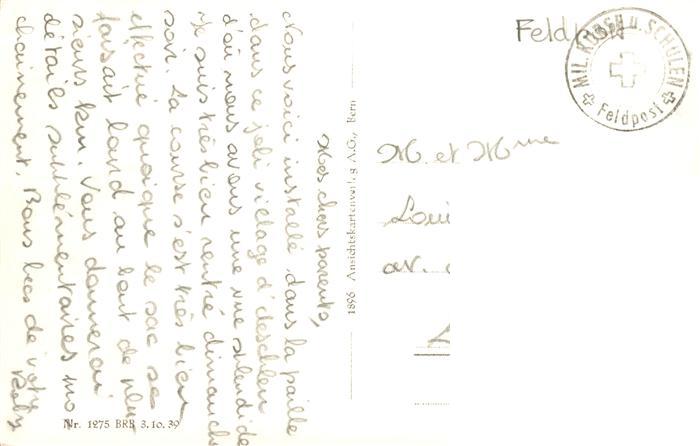 Feldpost
MIL. KURSE U. SCHULEN
Feldpost
Mes chers parents,
Nous voici installé dans la paille
dans ce joli village d'Aeschlen
d'où nous avons une vue splendide
Je suis très bien rentré dimanche
soir. La course s'est très bien
effectué quoique le sac se
faisait lourd au bout de plu
sieurs km. Vous donnerai
détails supplémentaires
prochainement. Bons becs de votre
M. et Mme
Loui
av.
1896 Ansichtskartenverl. g A.G., Bern
Nr. 1275 BRB 3.10.39